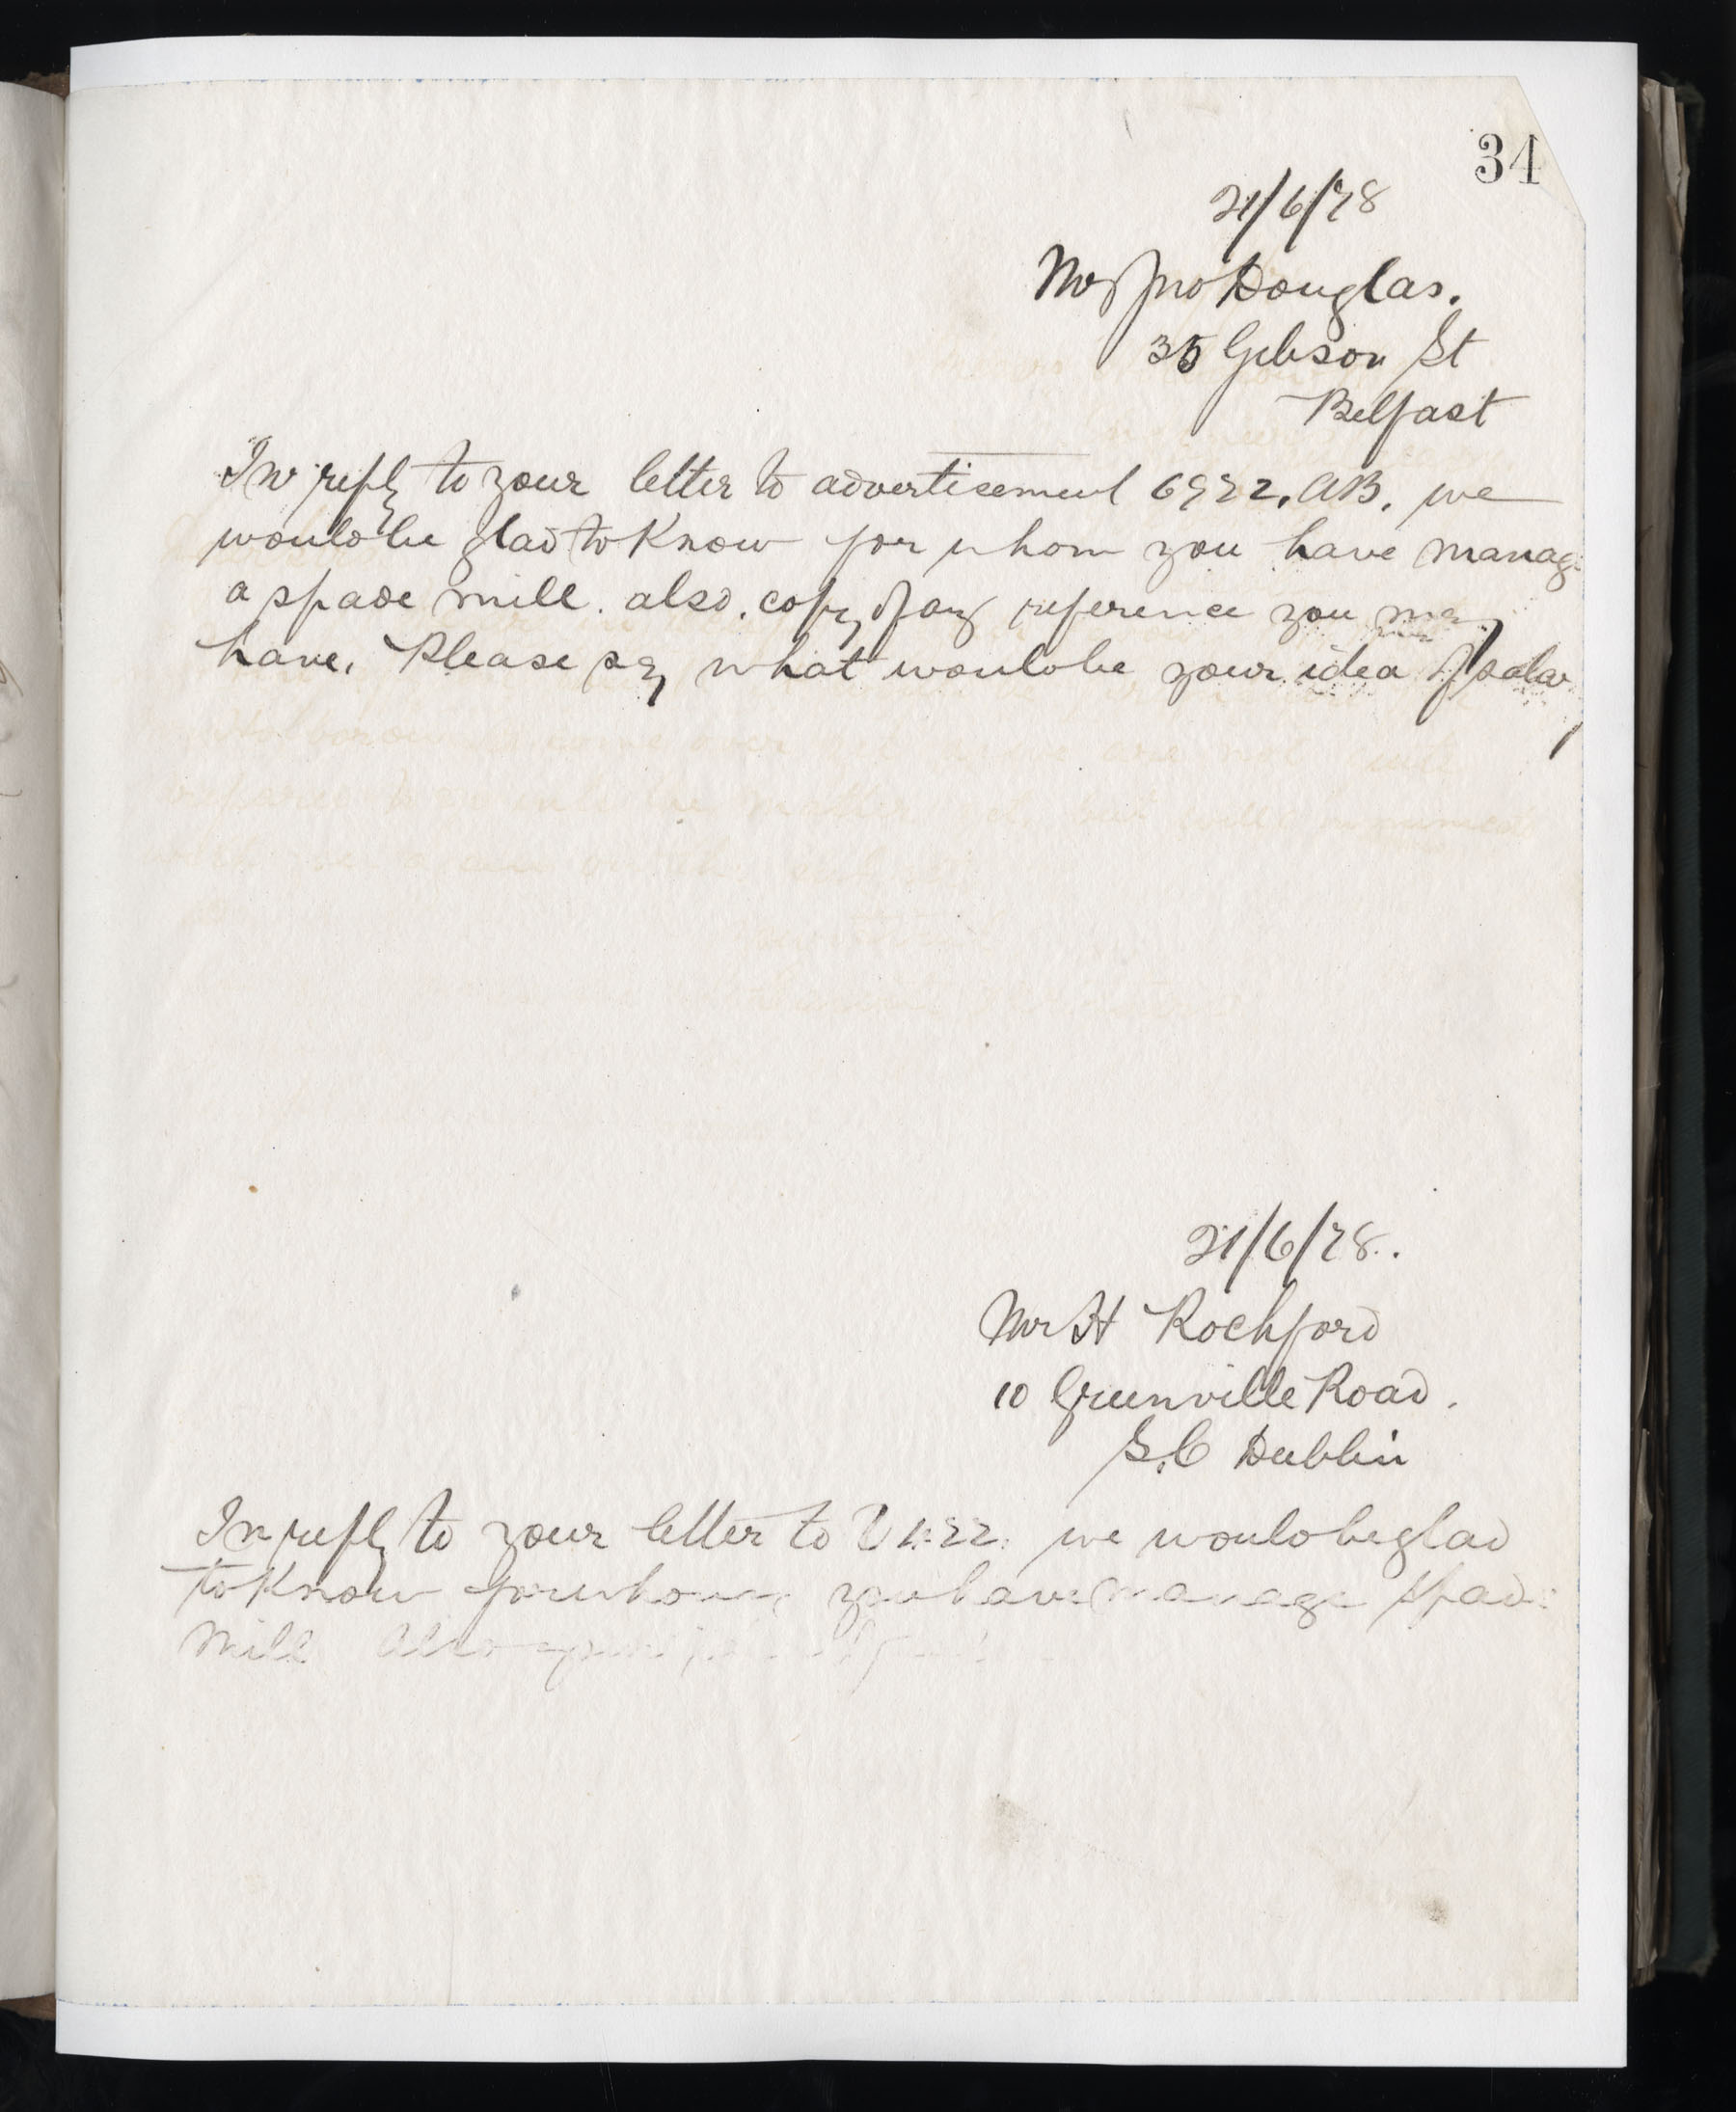 34
21/6/78
Mr Jno Douglas.
35 Gibson St
Belfast
In reply to your letter to advertisement 6922. AB. we
would be glad to know for whom you have manag
a spade mill. also. copy of any reference you may
have. Please say what would be your idea of salary
21/6/78.
Mr H Rochford
10 Grenville Road.
S.C Dublin
In reply to your letter to we would be glad
to know for whom you have manage spade
Mill Also